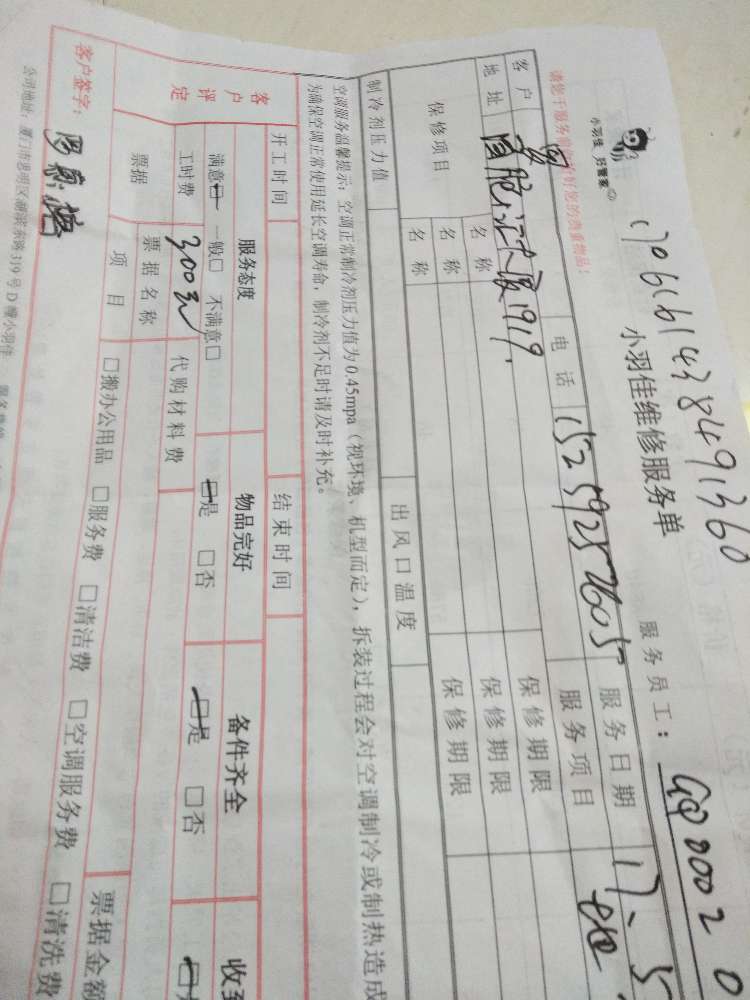 170616143849 1360
小羽佳 好管家
小羽佳维修服务单
服务员工:
请您于服务前
好您的贵重物品!
客户
电话 15259257605
服务日期 17.5
地址
1919.
服务项目
保修项目
名称
保修期限
名称
保修期限
名称
保修期限
制冷剂压力值
出风口温度
空调服务温馨提示:空调正常制冷剂压力值为0.45mpa(视环境、机型而定),拆装过程会对空调制冷或制热造成
为确保空调正常使用延长空调寿命,制冷剂不足时请及时补充。
开工时间
结束时间
客户评定
服务态度
物品完好
备件齐全
收到
满意□ 一般□ 不满意□
□是 □否
□是 □否
工时费 300元
代购材料费
票据
票据名称
票据金额
项目
□搬办公用品 □服务费 □清洁费 □空调服务费 □清洗费
客户签字:
公司地址:厦门市思明区湖滨东路319号D幢小羽佳